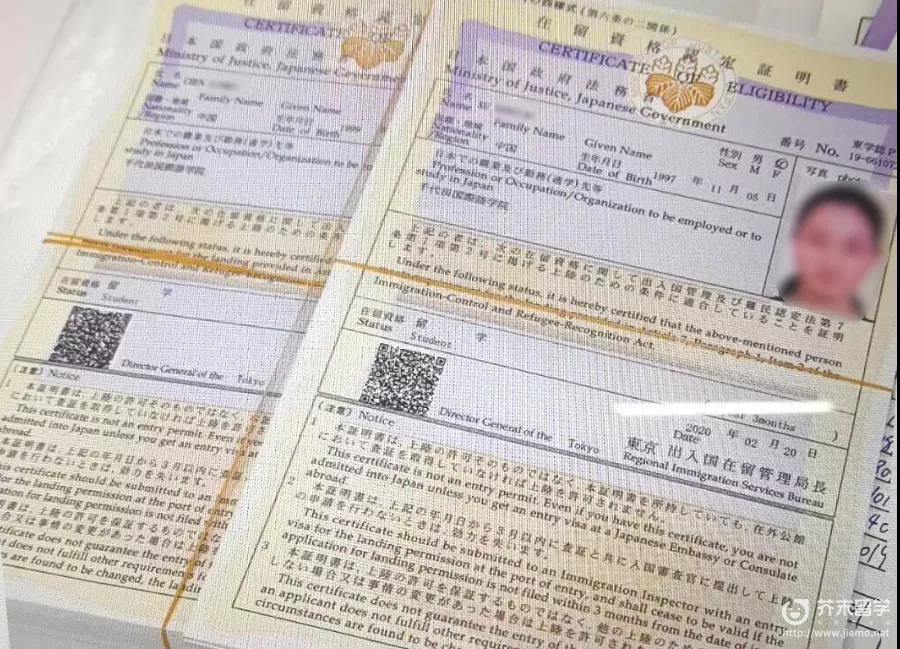 在留資格
CERTIFICATE
日本国政府法務
Ministry of Justice, Japanese Government
氏名
Name
Family Name
Given Name
国籍・地域
Nationality
/Region
中国
生年月日
Date of Birth
1999
日本での職業及び勤務(通学)先等
Profession or Occupation/Organization to be
study in Japan
千代田国際語学院
Under the following status, it is hereby certified
Immigration-Control and
在留資格 留 学
Status Student
Director General of the Tokyo
(注意) Notice
(第六条の二関係)
在留資格認定証明書
CERTIFICATE OF ELIGIBILITY
日本国政府法務省
Ministry of Justice, Japanese Government
番号 No.
氏名
Name
Family Name
Given Name
性別 男 女
Sex M F
写真 photo
国籍・地域
Nationality
/Region
中国
生年月日
Date of Birth
1997 年 11 月 05 日
日本での職業及び勤務(通学)先等
Profession or Occupation/Organization to be employed or to
study in Japan
千代田国際語学院
上記の者は、次の在留資格に関して出入国管理及び難民認定法第7
条第1項第2号に掲げる上陸のための条件に適合していることを証明
します。
Under the following status, it is hereby certified that the above-mentioned person
Immigration-Control and Refugee-Recognition Act.
在留資格 留 学
Status Student
3months )
2020 年 02 月 20 日
Date
Director General of the Tokyo
東京 出入国在留管理局長
Regional Immigration Services Bureau
(注意) Notice
1 本証明書は、上陸の許可そのものではなく、本証明書を所持していても、在外公館
において査証を取得していなければ上陸を許可されません。
This certificate is not an entry permit. Even if you have this certificate, you are not
admitted into Japan unless you get an entry visa at a Japanese Embassy or Consulate
abroad.
2 本証明書は、上記の年月日から3月以内に査証と共に入国審査官に提出して上陸
の申請を行わないときは、効力を失います。
This certificate should be submitted to an Immigration Inspector with an entry
visa for the landing permission at the port of entry, and shall cease to be valid if the
application for landing permission is not filed within 3 months from the date of
3 本証明書は、上陸の許可を保証するものではなく、他の上陸のための
しない場合又は事情の変更があった場合は上陸を許可され
This certificate does not guarantee the entry of
an applicant does not fulfill other requirements
circumstances are found to be changed,
芥末留学
http://www.jiemo.net